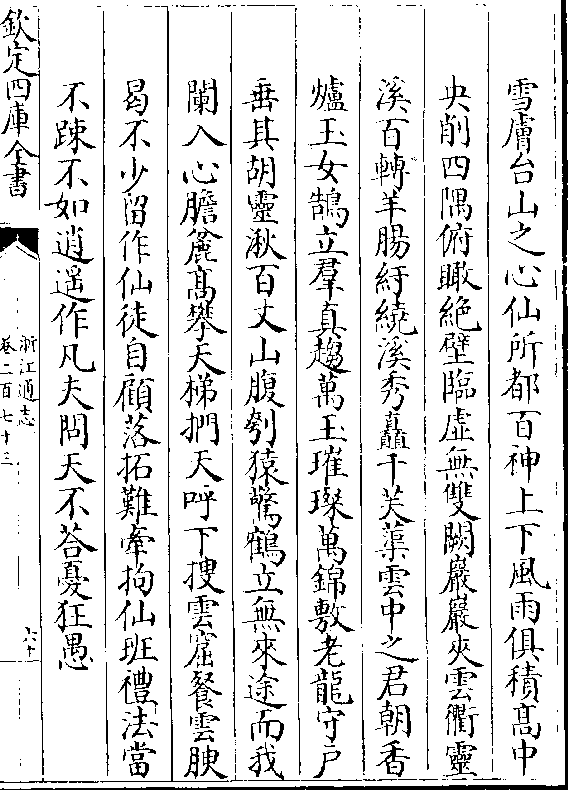 雪膚台山之心仙所都百神上下風雨俱積髙中
央削四隅俯瞰絶壁臨虚無雙闕巖巖夾雲衢靈
溪百轉羊腸紆繞溪秀矗千芙蕖雲中之君朝香
爐玉女鵠立羣真趨萬玉璀璨萬錦敷老龍守戸
垂其胡靈湫百丈山腹刳猿驚鶴立無來途而我
闌入心膽麄髙攀天梯捫天呼下搜雲窟餐雲腴
曷不少留作仙徒自顧落拓難牽拘仙班禮法當
不踈不如逍遥作凡夫問天不荅憂狂愚
欽定四庫全書
浙江通志
卷二百七十三
六十